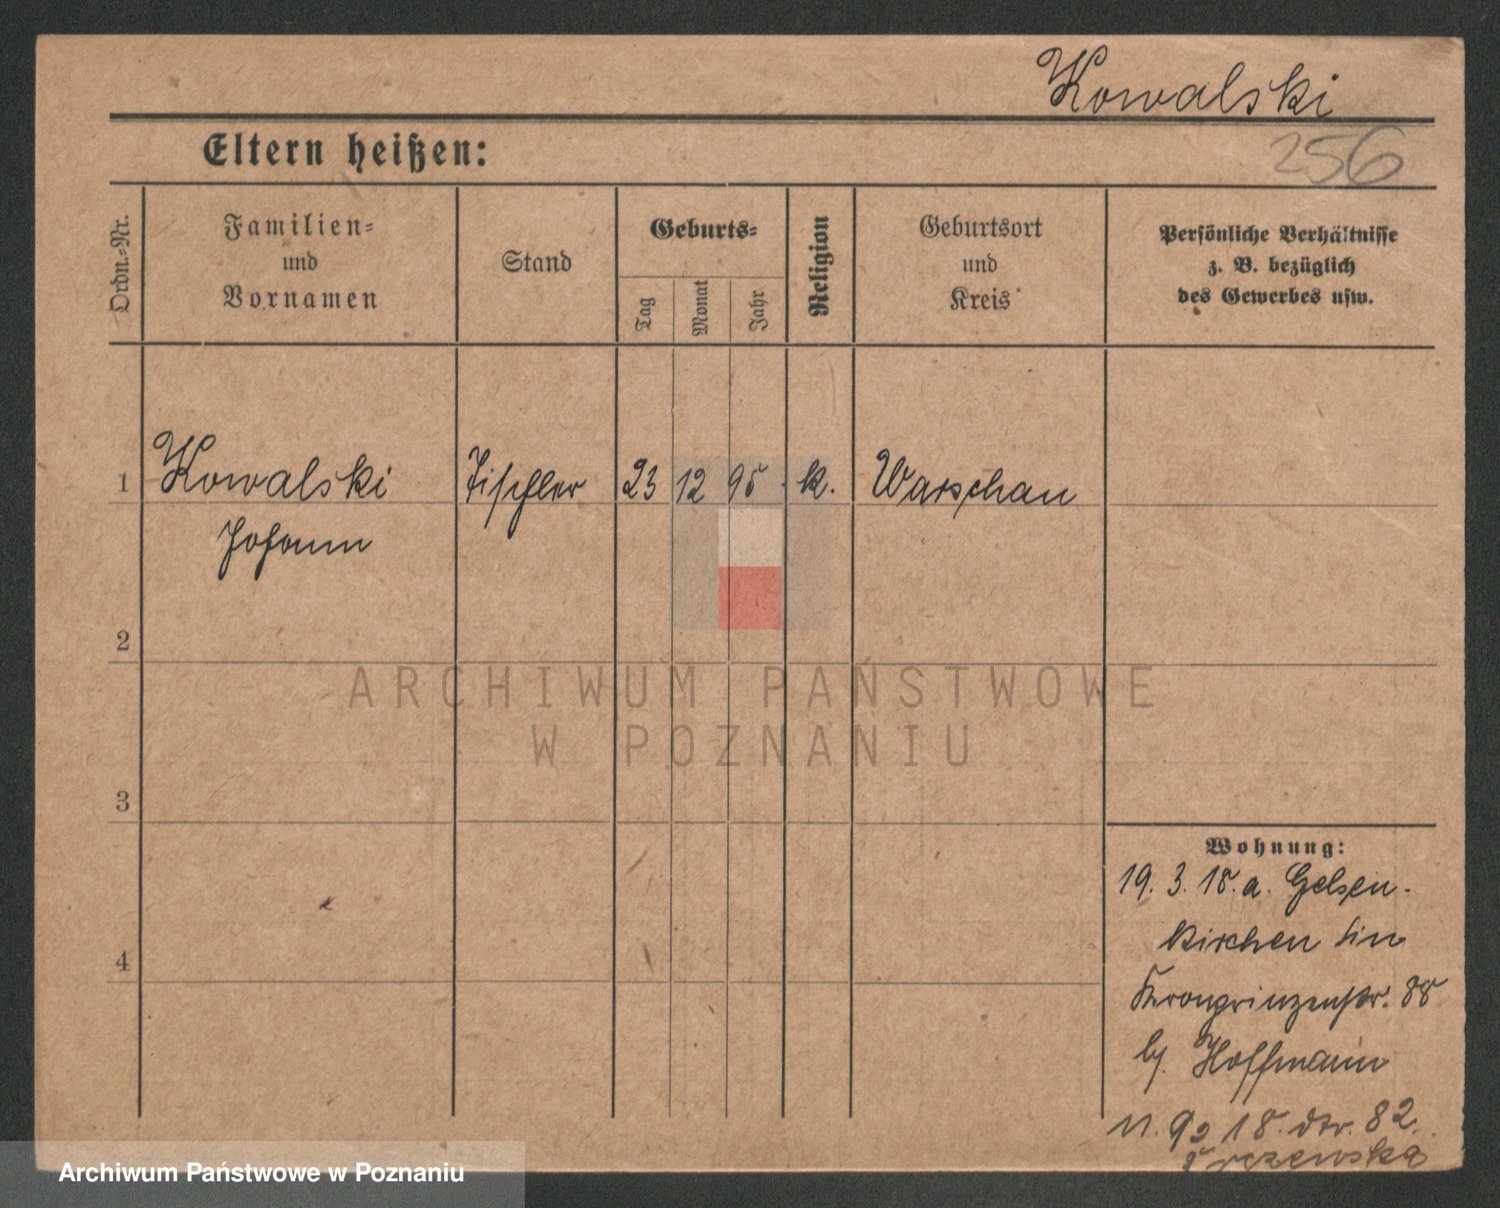 Kowalski
256
Eltern heißen:
Ordn.-Nr.
Familien-
und
Vornamen
Stand
Geburts-
Tag
Monat
Jahr
Religion
Geburtsort
und
Kreis
Persönliche Verhältnisse
z. B. bezüglich
des Gewerbes usw.
1 Kowalski Tischler 23 12 95 k. Warschau
Johann
2
ARCHIWUM PAŃSTWOWE
W POZNANIU
3
4
Wohnung:
19. 3. 18. a. Gelsen-
kirchen
Kronprinzenstr. 88
b/. Hoffmann
18. dto. 82.
Archiwum Państwowe w Poznaniu